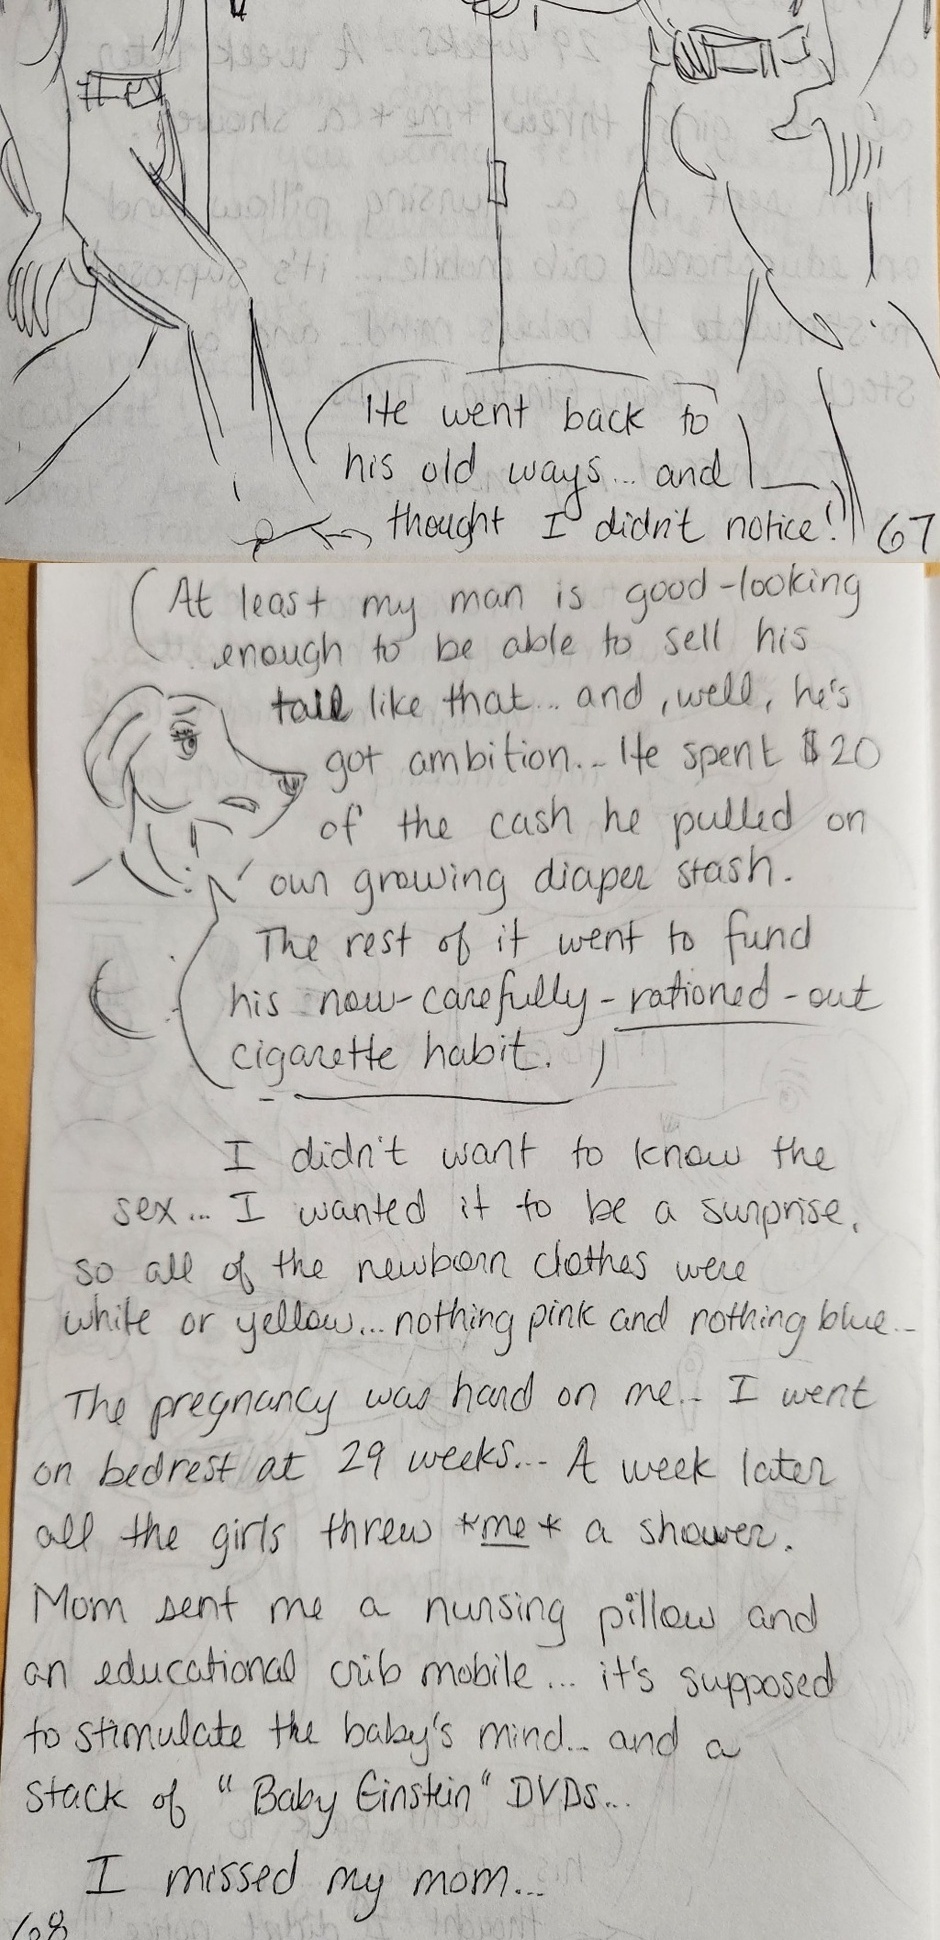 He went back to
his old ways... and
thought I didn't notice!
67
At least my man is good-looking
enough to be able to sell his
tail like that... and, well, he's
got ambition... He spent $20
of the cash he pulled on
our growing diaper stash.
The rest of it went to fund
his now-carefully-rationed-out
cigarette habit.
I didn't want to know the
sex... I wanted it to be a surprise,
so all of the newborn clothes were
white or yellow... nothing pink and nothing blue...
The pregnancy was hard on me... I went
on bedrest at 29 weeks... A week later
all the girls threw *me* a shower.
Mom sent me a nursing pillow and
an educational crib mobile... it's supposed
to stimulate the baby's mind... and a
stack of "Baby Einstein" DVDs...
I missed my mom...
68